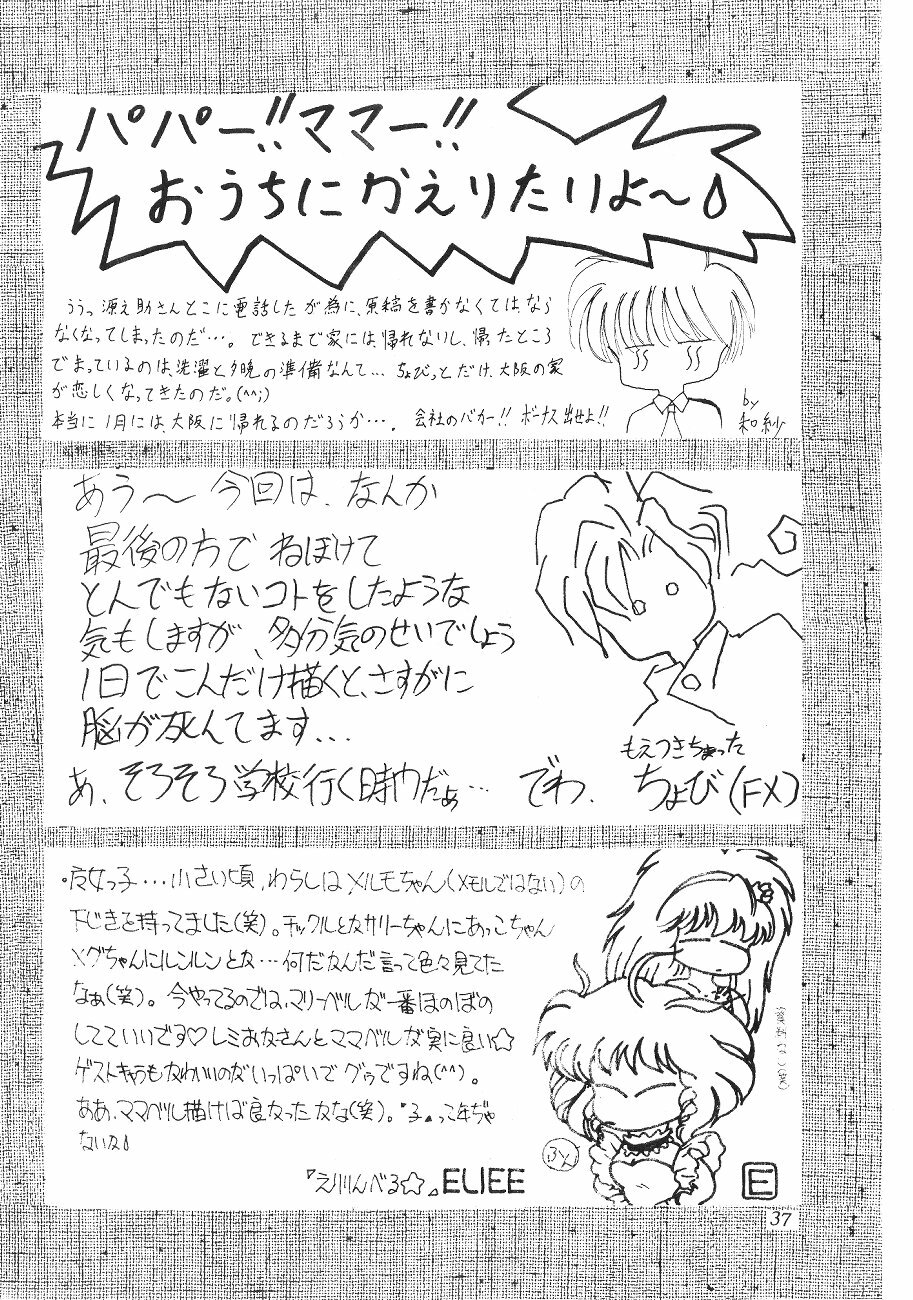 パパー!!ママー!!
おうちにかえりたいよ〜♪
ううっ源之助さんとこに電話したが為に、原稿を書かなくてはなら
なくなってしまったのだ…。できるまで家には帰れないし、帰ったところ
でまっているのは洗濯と夕晩の準備なんて…ちょびっとだけ、大阪の家
が恋しくなってきたのだ。(^^;)
本当に1月には、大阪に帰れるのだろうか…。会社のバカー!!ボーナス出せよ!!
by
和紗
あう〜今回は、なんか
最後の方でねぼけて
とんでもないコトをしたような
気もしますが、多分気のせいでしょう
1日でこんだけ描くと、さすがに
脳が死んでます...
もえつきちゃった
あ、そろそろ学校行く時間だぁ… でわ、ちょび(FX)
・魔女っ子…小さい頃、わらしはメルモちゃん(メモルではない)の
下じきを持ってました(笑)。チックルとかサリーちゃんにあっこちゃん
メグちゃんにルンルンとか…何だかんだ言って色々見てた
なぁ(笑)。今やってるのでは、マリーベルが一番ほのぼの
してていいです♡レミおかさんとママベルが実に良い☆
ゲストキャラもかわいいのがいっぱいでグゥですね(^^)。
ああ、ママベル描けば良かったかな(笑)。"子"って年ぢゃ
ないか♪
『えりりんべる☆』ELIEE
E
37